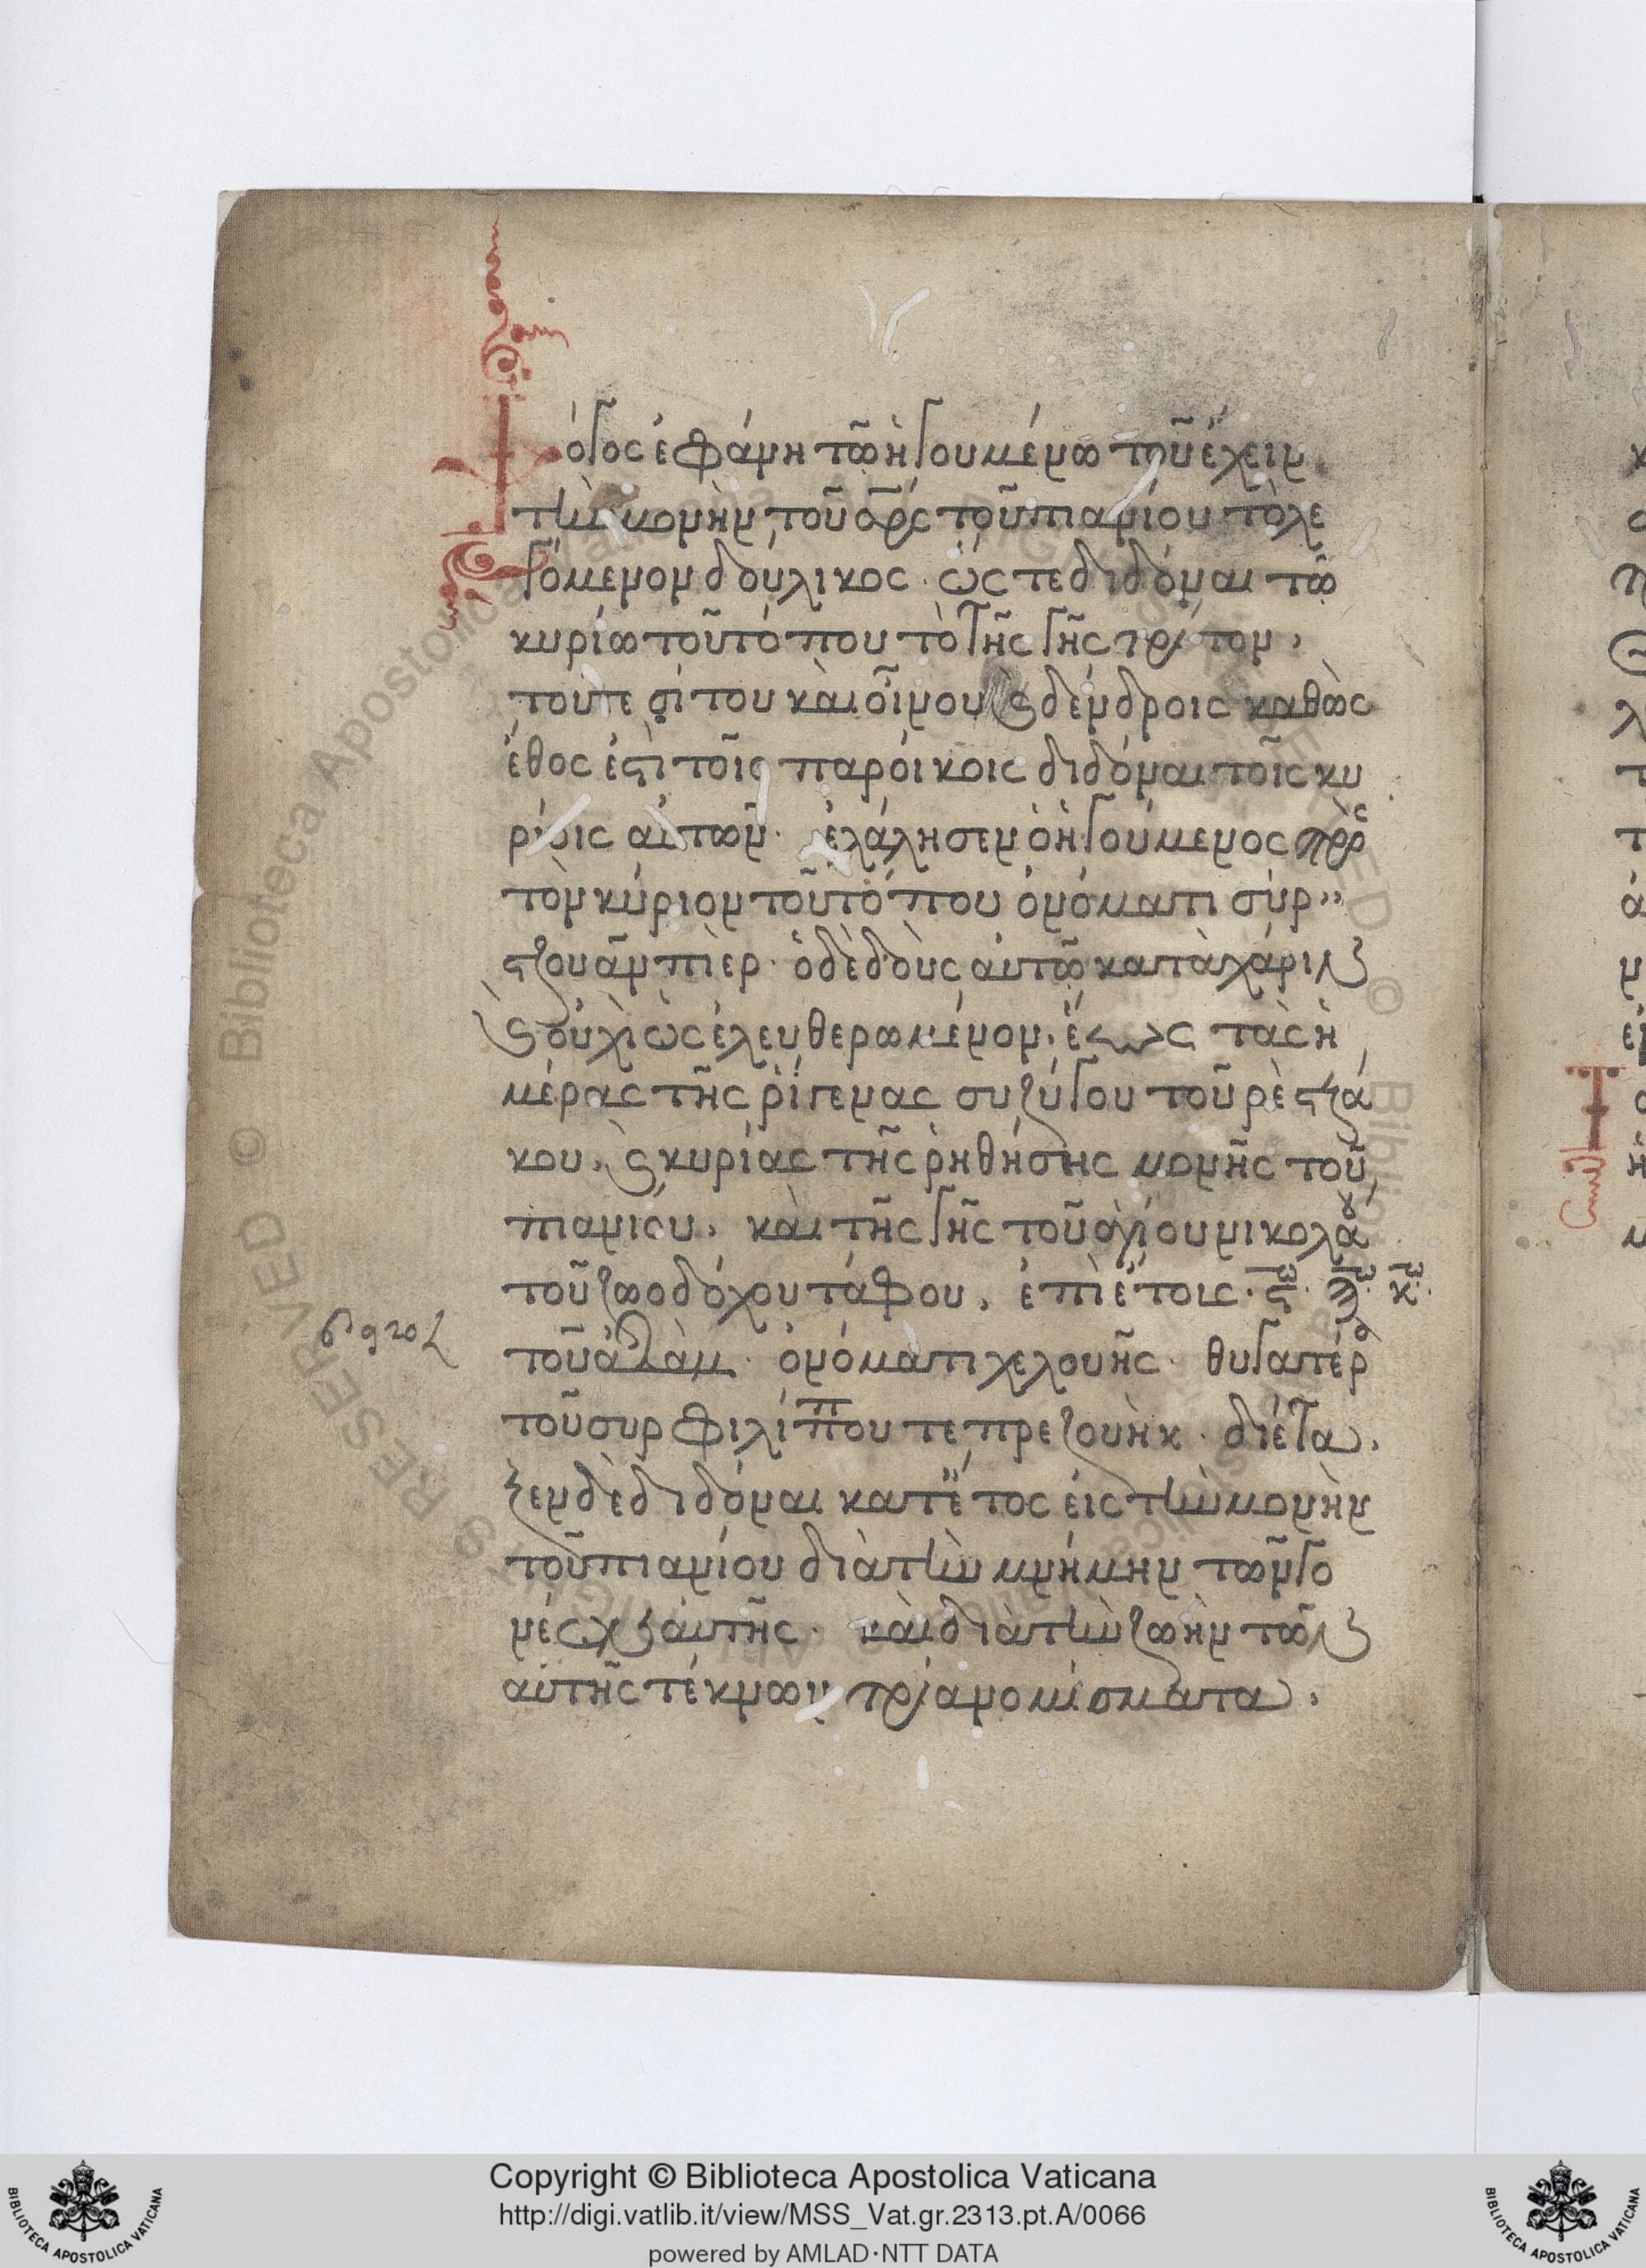 όγος ἐφάνη τῶ ἡγουμένω τοῦ ἔχειν
τὴν νομὴν τοῦ ὄρς τοῦ πανίου τὸ λε
γόμενον δούλικος · ὥς τε διδόναι τῶ
κυρίω τοῦ τόπου τὸ τῆς γῆς τρίτον,
τοῦτε σίτου καὶ οἴνου ϗ δένδροις καθὼς
ἔθος ἐστὶ τοῖς παροίκοις διδόναι τοῖς κυ
ρίοις αὐτῶν · ἐλάλησεν ὁ ἡγούμενος πρὸς
τὸν κύριον τοῦ τόπου ὀνόματι σὺρ
τζουὰν πιὲρ · ὁ δὲ δοὺς αὐτῶ κατὰ χάριν
ϗ οὐχὶ ὡς ἐλευθερωμένον · ἕως τὰς ἡ
μέρας τῆς ῥίγενας συζύγου τοῦ ρὲ τζά
κου, ϗ κυρίας τῆς ῥηθήσης νομῆς τοῦ
πανίου, καὶ τῆς γῆς τοῦ ἁγίου νικολάου
τοῦ ζωοδόχου τάφου, ἐπὶ ἔτοις · ϛ · ϡ · κ ·
τοῦ ἀλὰμ · ὀνόματι χελουῆς · θυγατέρ
τοῦ συρ φιλίππου τε πρεζουὴκ · διέτα
ξεν δὲ διδόναι κατ' ἔτος εἰς τὴν νομὴν
τοῦ πανίου διὰ τὴν μνήμην τῶν γο
νέων αὐτῆς · καὶ διὰ τὴν ζωὴν τῶν
αὐτῆς τέκνων τρία νομίσματα,
Copyright © Biblioteca Apostolica Vaticana
http://digi.vatlib.it/view/MSS_Vat.gr.2313.pt.A/0066
powered by AMLAD·NTT DATA
BIBLIOTECA APOSTOLICA VATICANA
BIBLIOTECA APOSTOLICA VATICANA